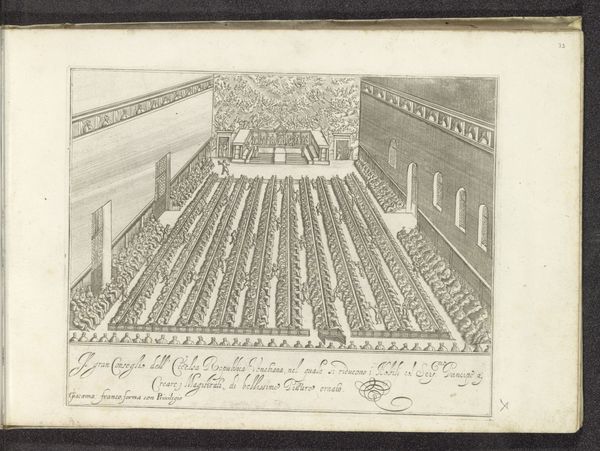 33
Il gran Conseglio dell' Ecclsa Republica Venetiana, nel quale si riducono i Nobili et Ser.mo Principe à
Creare i Magistrati, di bellissime Pitture ornato.
Giacomo franco forma con Privilegio